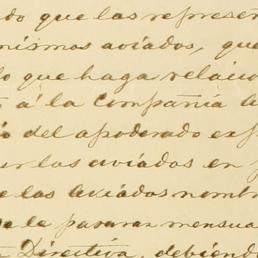 do que las represen
mismos aviados, que
lo que haga relacio
á la Compañia a
del apoderado exp
los aviados en
las aviados nombr
le pasaran mensua
Directiva, debiend